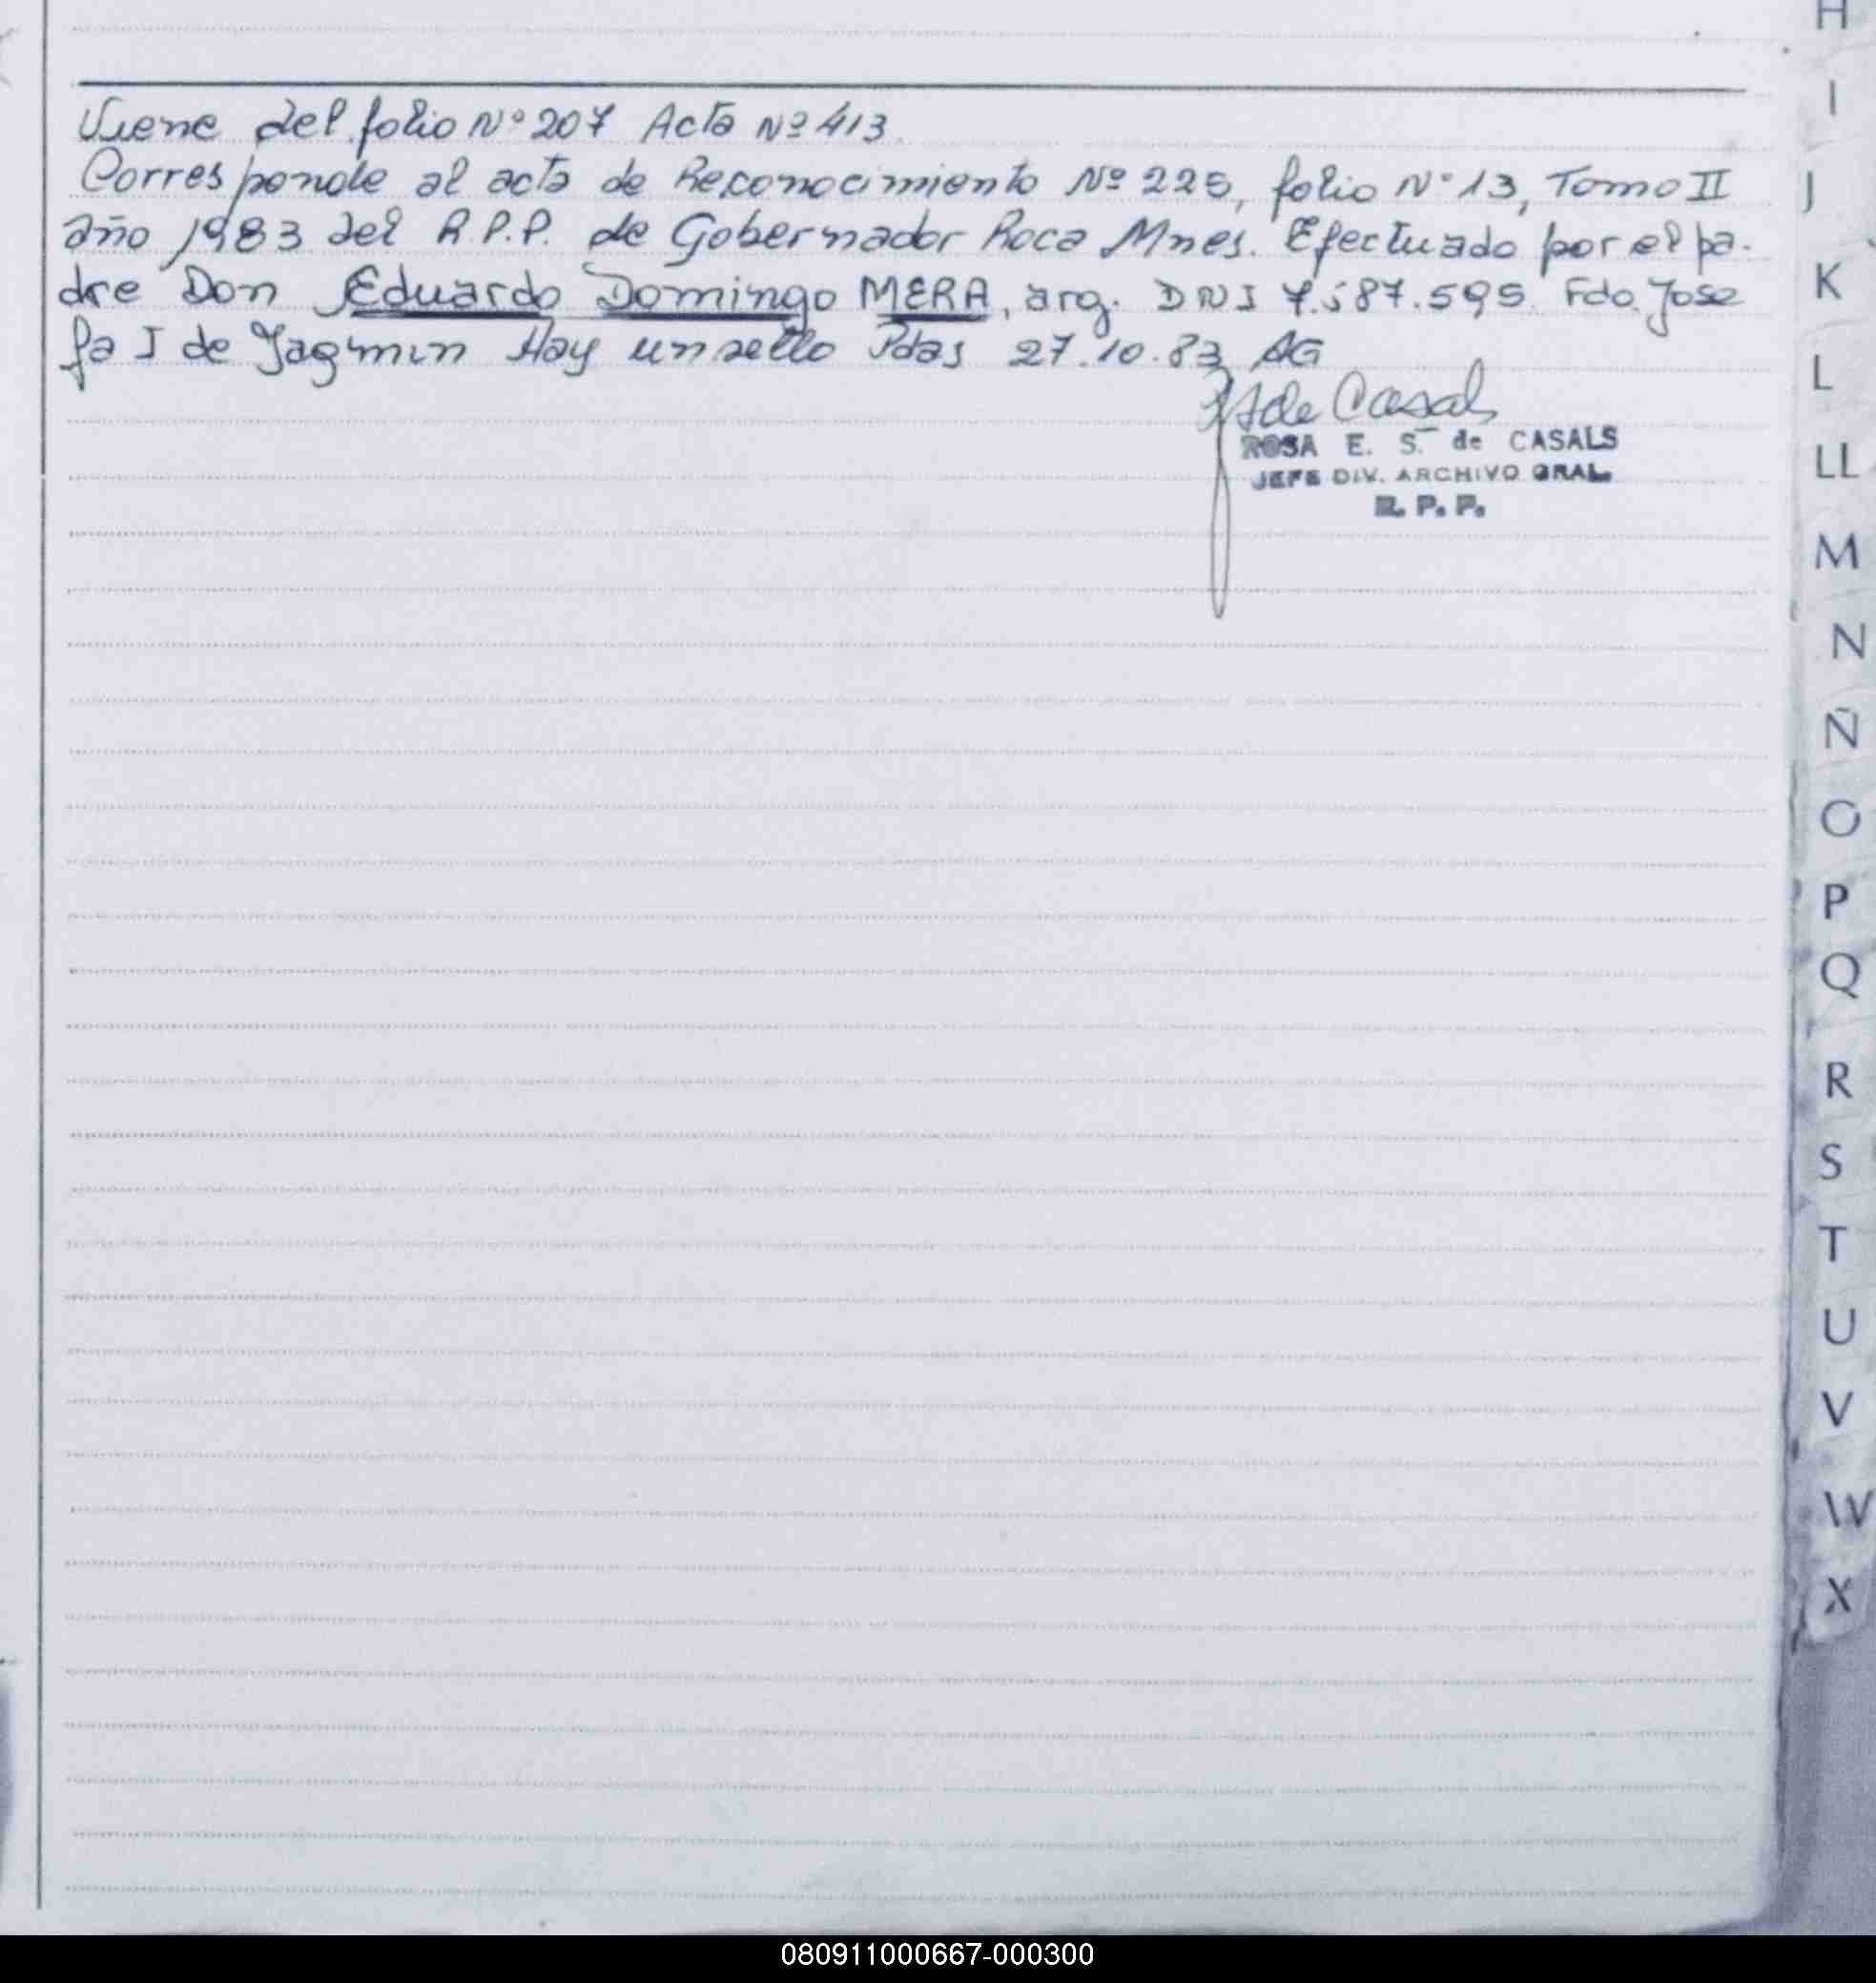 H
I
J
K
L
LL
M
N
Ñ
O
P
Q
R
S
T
U
V
W
X
Viene del folio Nº 207 Acta Nº 413
Corresponde al acta de Reconocimiento Nº 225, folio Nº 13, Tomo II
año 1983 del R.P.P. de Gobernador Roca Mnes. Efectuado por el pa-
dre Don Eduardo Domingo MERA, arg. DNI 7.587.595 Fdo. Jose
fa I de Jagmin Hay un sello Pdas 27.10.83 AG
de Casals
ROSA E. S. de CASALS
JEFE DIV. ARCHIVO GRAL.
R. P. P.
080911000667-000300